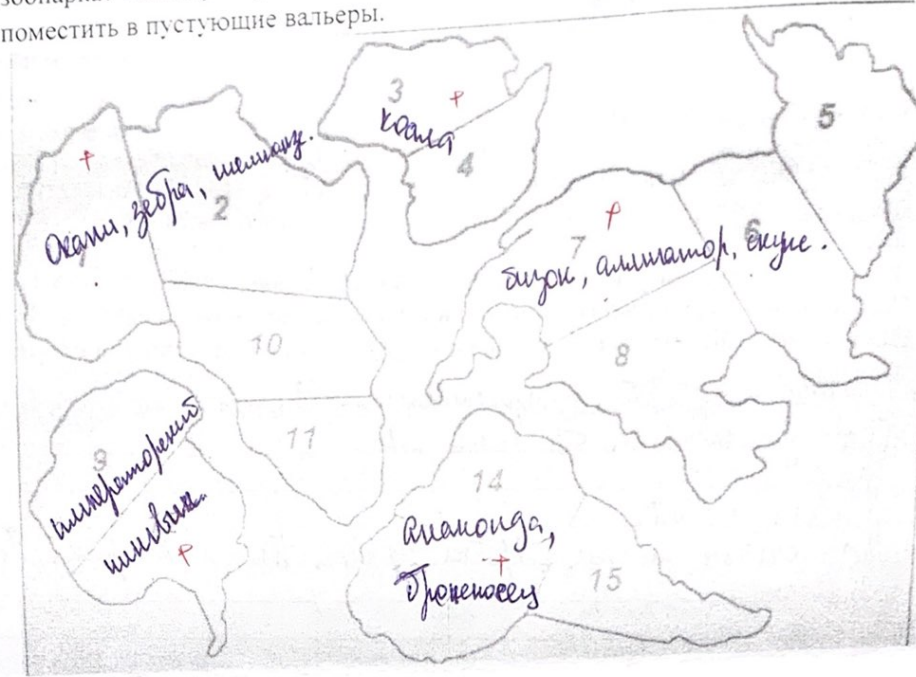 поместить в пустующие вальеры.
3
коала
4
5
Окапи, зебра, шимпанз.
2
7
6
бизон, аллигатор, скунс.
10
8
11
9
императорский
пингвин.
14
Анаконда,
Броненосец
15